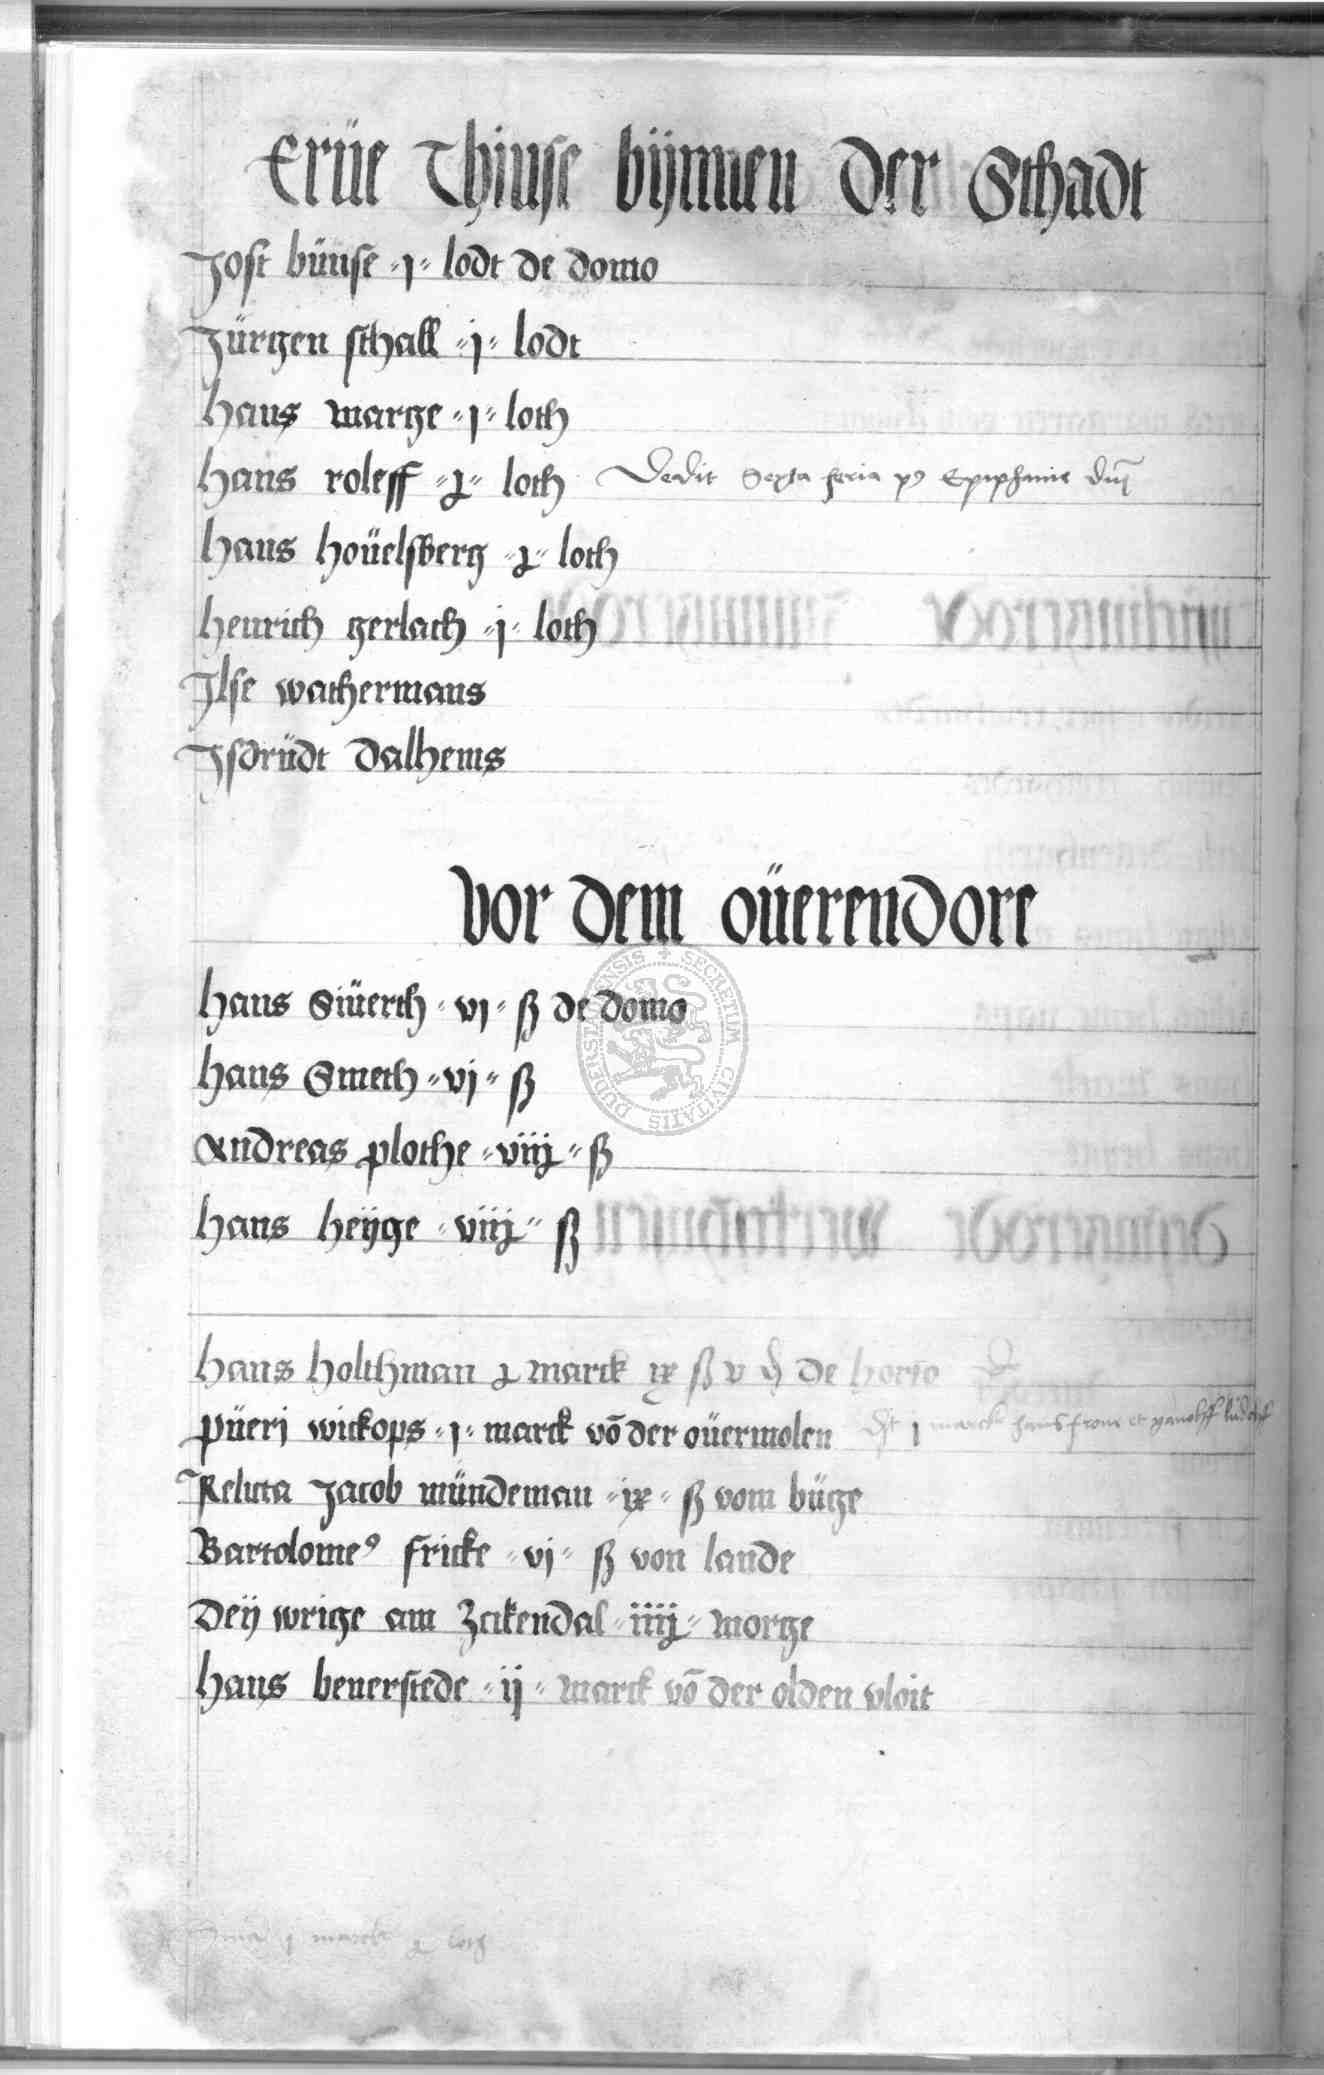 Erüe Thinse bijnnen der Sthadt
Jost bünse i lodt de domo
Jürgen sthall j lodt
hans warge i loth
hans roleff ꝛ loth Dedit Sexta feria pꝯ Epiphanie dnī
hans hoüelsberg ꝛ loth
henrich gerlach i loth
Jlse wathermans
Jsdrüdt dalhems
Vor dem oüerendore
hans Siüerth vj ß de domo
hans Smeth vj ß
Andreas plothe viijꝛ ß
hans heÿge viijꝛ ß
hans holthman ꝛ marck ix ß v de horto
püeri wickops j marck vō der oüermolen j marck hans frone et
Relicta Jacob mündeman ix ß vom büge
Bartolomeꝰ fricke vj ß von lande
Deÿ wrige am Zekendal iiijꝛ morge
hans beuerstede ij marck vō der olden vloit
Sma j marck ꝛ loth
SECRETUM CIVITATIS DUDERSTADENSIS